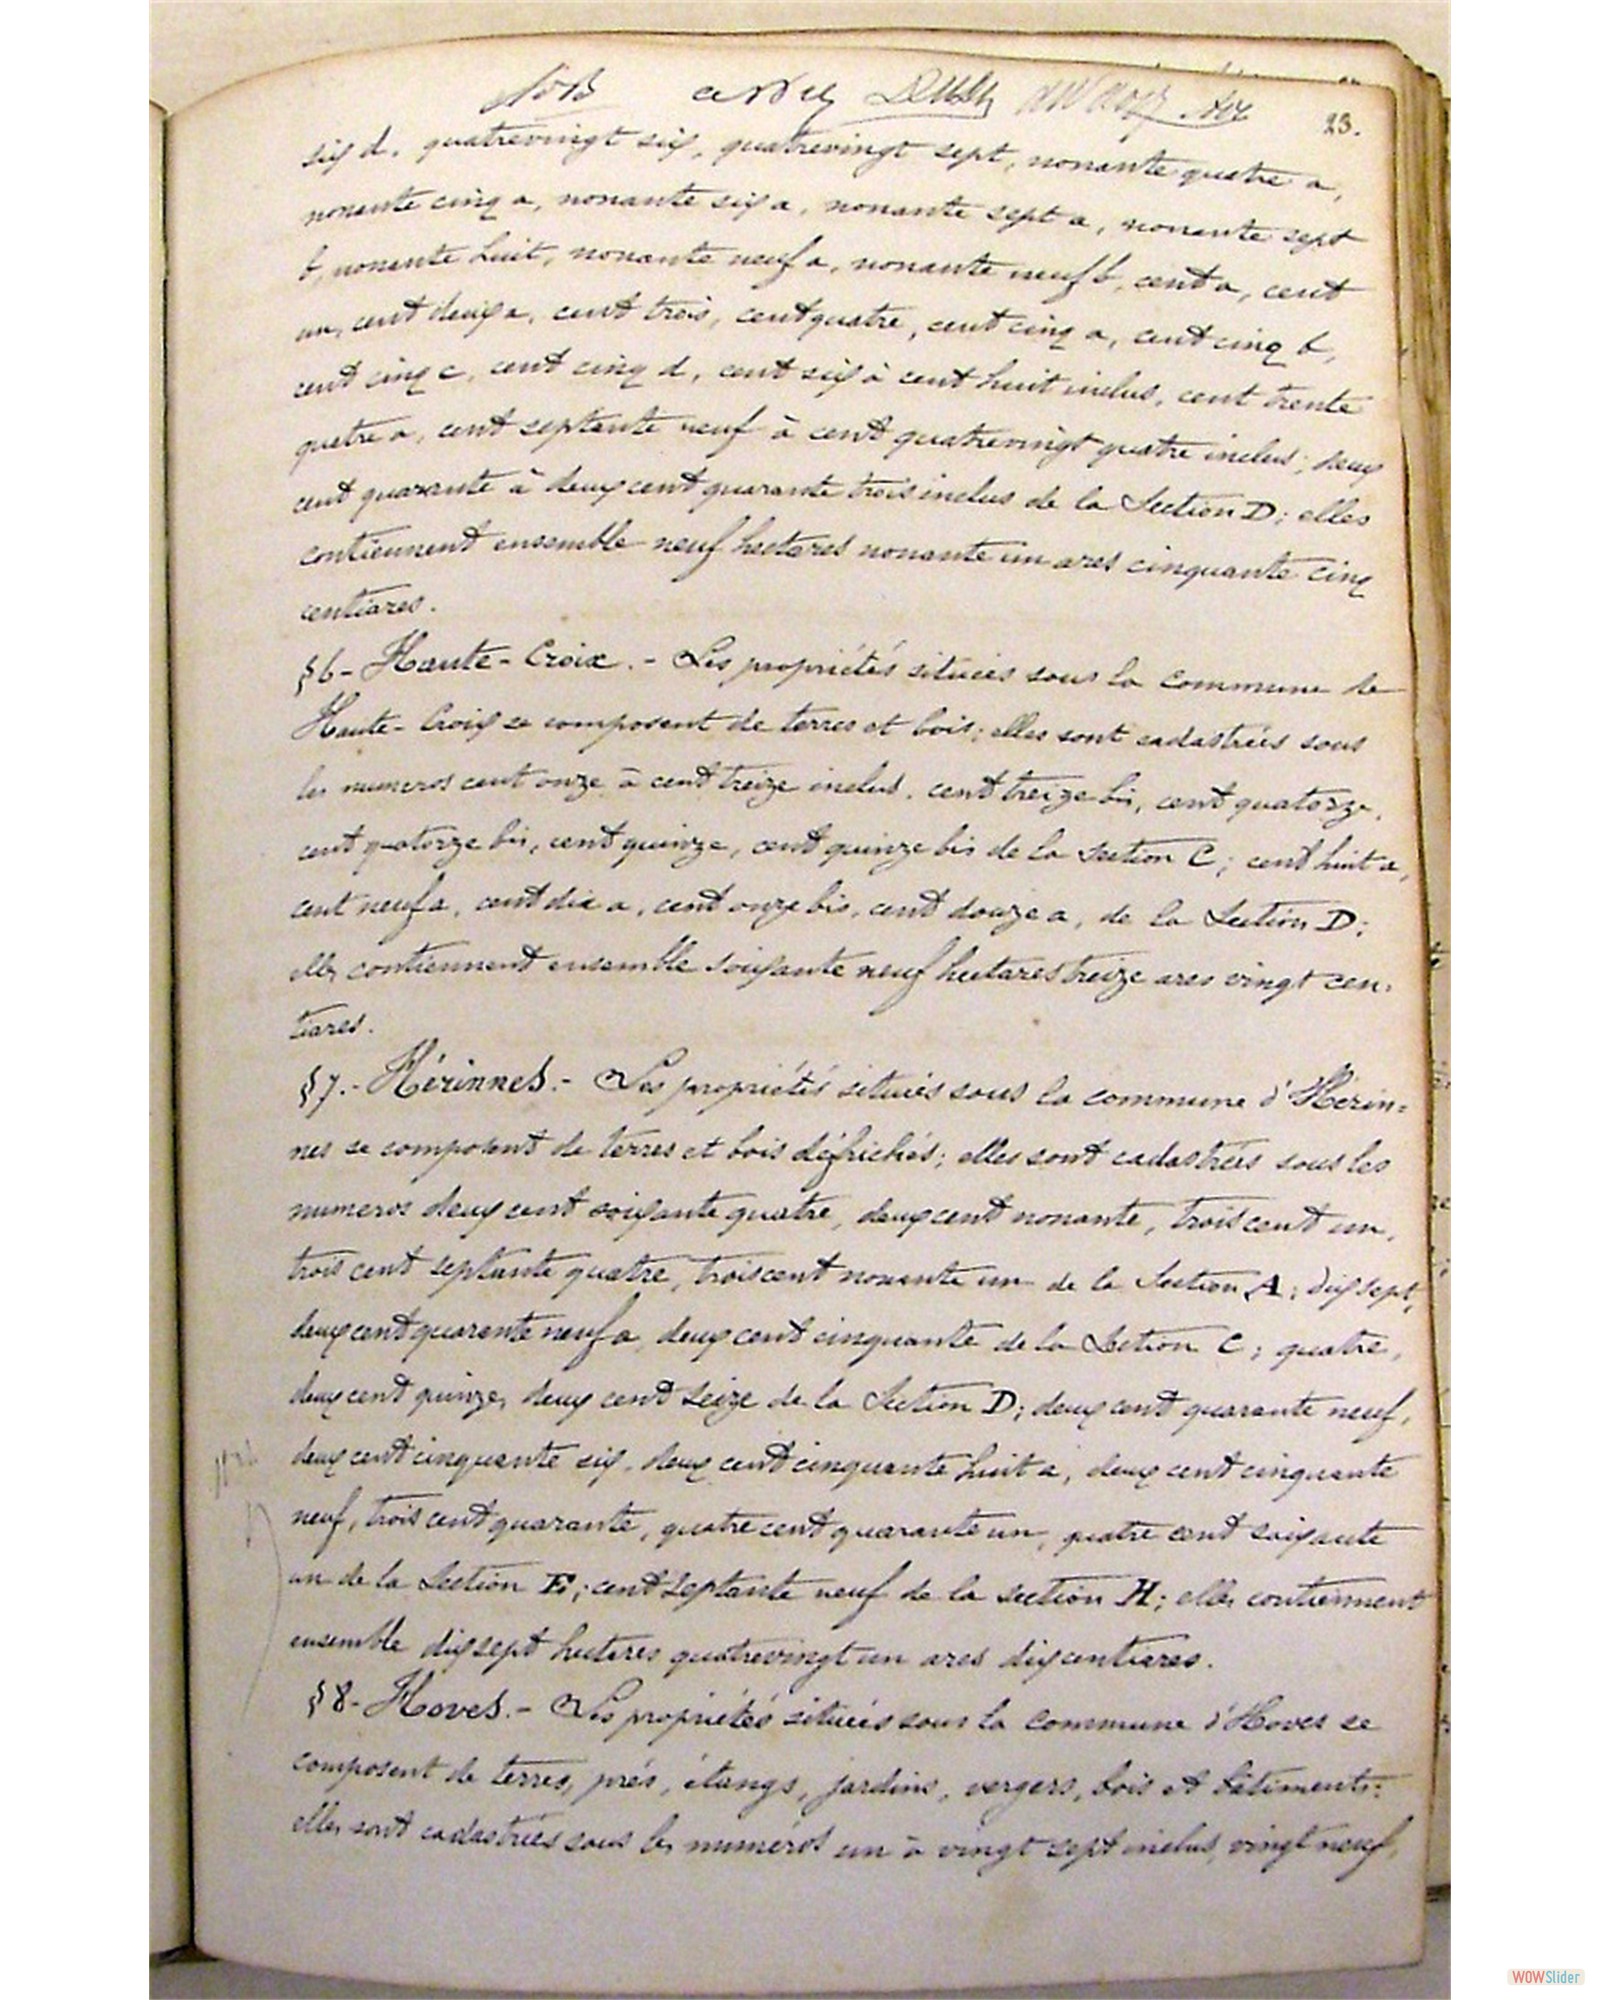 23.
six d, quatrevingt six, quatrevingt sept, nonante quatre a,
nonante cinq a, nonante six a, nonante sept a, nonante sept
b, nonante huit, nonante neuf a, nonante neuf b, cent a, cent
un, cent deux a, cent trois, cent quatre, cent cinq a, cent cinq b,
cent cinq c, cent cinq d, cent six à cent huit inclus, cent trente
quatre a, cent septante neuf à cent quatrevingt quatre inclus; deux
cent quarante à deux cent quarante trois inclus de la Section D; elles
contiennent ensemble neuf hectares nonante un ares cinquante cinq
centiares.
§6- Haute-Croix.- Les propriétés situées sous la commune de
Haute-Croix se composent de terres et bois; elles sont cadastrées sous
les numeros cent onze à cent treize inclus, cent treize bis, cent quatorze,
cent quatorze bis, cent quinze, cent quinze bis de la section C; cent huit a,
cent neuf a, cent dix a, cent onze bis, cent douze a, de la Section D;
elles contiennent ensemble soixante neuf hectares treize ares vingt cen-
tiares.
§7.- Hérinnes.- Les propriétés situées sous la commune d'Hérin=
nes se composent de terres et bois défrichés; elles sont cadastrées sous les
numeros deux cent soixante quatre, deux cent nonante, trois cent un,
trois cent septante quatre, trois cent nonante un de la Section A; dix sept,
deux cent quarante neuf a, deux cent cinquante de la Section C; quatre,
deux cent quinze, deux cent seize de la Section D; deux cent quarante neuf,
deux cent cinquante six, deux cent cinquante huit a, deux cent cinquante
neuf, trois cent quarante, quatre cent quarante un, quatre cent soixante
un de la Section E; cent septante neuf de la section H; elles contiennent
ensemble dix sept hectares quatrevingt un ares dix centiares.
§8- Hoves.- Les propriétés situées sous la commune d'Hoves se
composent de terres, prés, étangs, jardins, vergers, bois et bâtiments;
elles sont cadastrées sous les numéros un à vingt sept inclus, vingt neuf,
WOWSlider